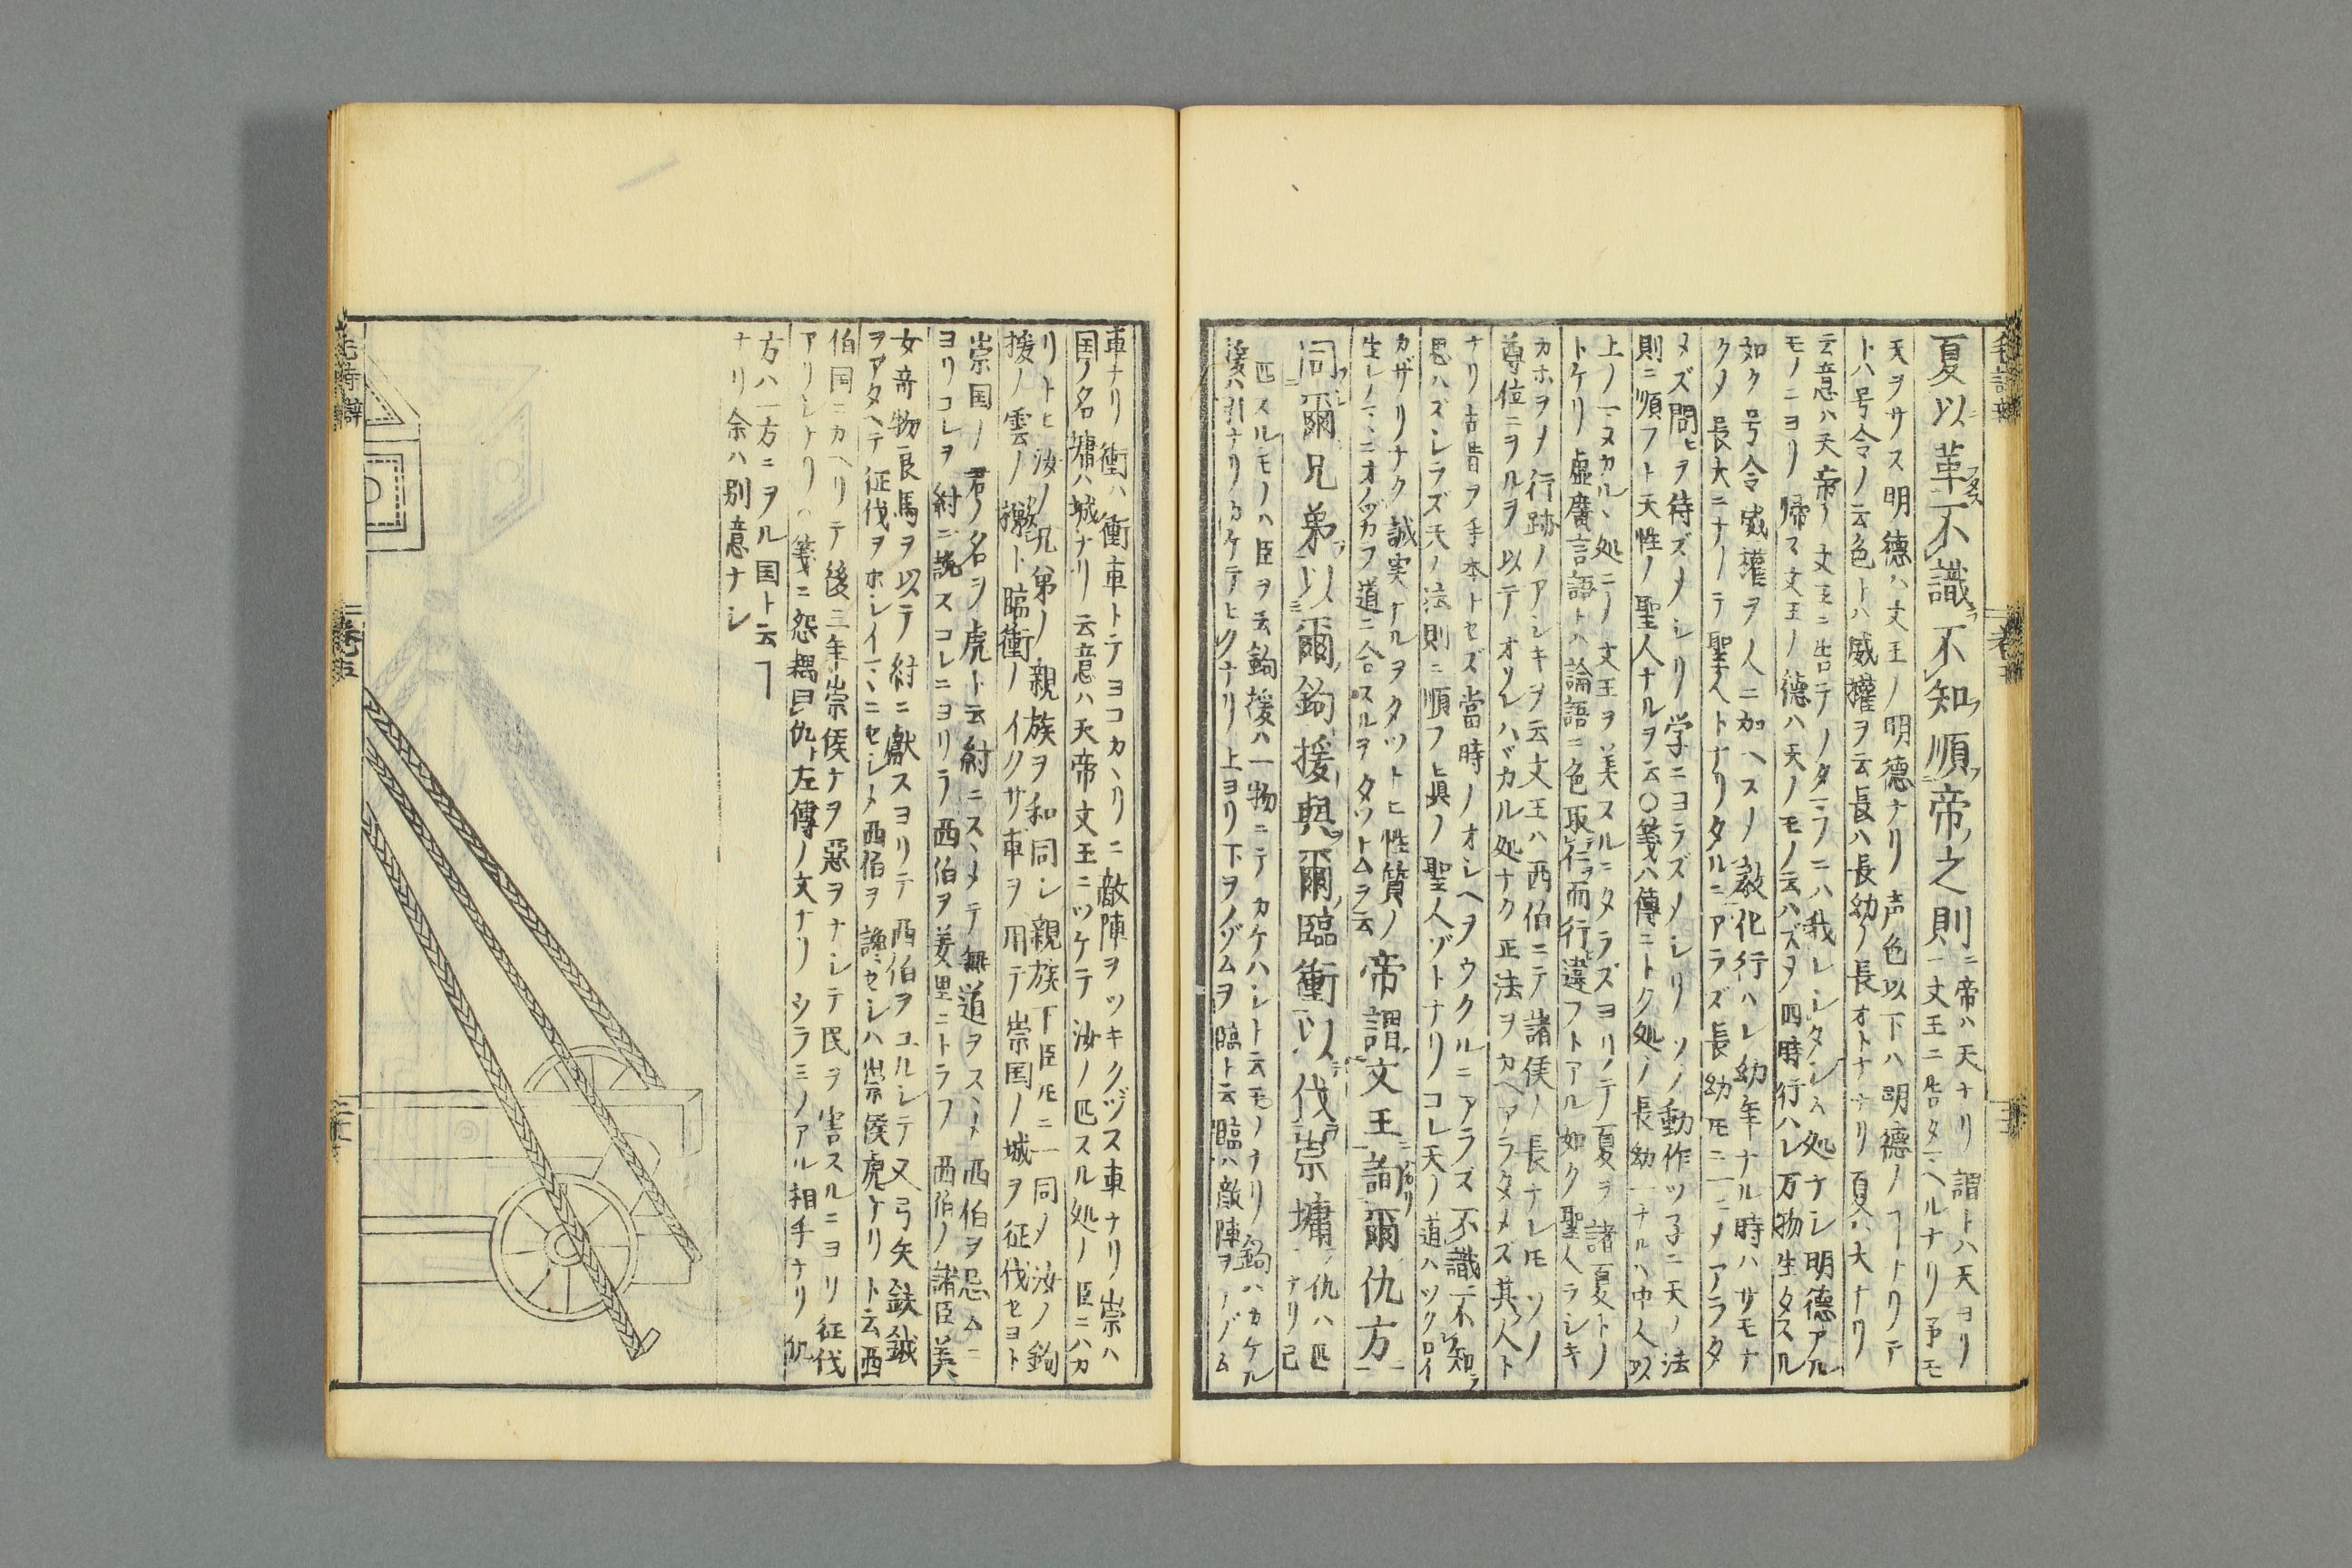 夏以革不識不知順帝之則
帝ハ天ナリ謂トハ天ヨリ
文王ニ告タマヘルナリ予モ
天ヲサス明德ハ文王ノ明德ナリ声色以下ハ明德ノヿナリテ
トハ号令ノ云色トハ威權ヲ云長ハ長幼ノ長オトナナリ夏ハ大ナリ
云意ハ天帝ノ文王ニ告テノタマフニハ我レシタシム処ナシ明德アル
モノニヨリ帰ス文王ノ德ハ天ノモノ云ハズメ四時行ハレ万物生タスル
如ク号令威權ヲ人ニ加ヘスメ教化行ハレ幼年ナル時ハサモナ
クメ長大ニナリテ聖人トナリタルニアラズ長幼トモニ一ニメアラタ
メズ問ヒヲ待ズメシリ学ニヨラズメシリソノ動作ツ子ニ天ノ法
則ニ順フト天性ノ聖人ナルヲ云〇箋ハ傳ニトク処ノ長幼一ナルハ中人以
上ノマヌカルヽ処ニメ文王ヲ美スルニタラズヨリテ夏ヲ諸夏トメ
トケリ虚廣言語トハ論語ニ色取仁而行違フトアル如ク聖人ラシキ
カホヲメ行跡ノアシキヲ云文王ハ西伯ニテ諸侯ノ長ナレトモソノ
尊位ニヲルヲ以テオソレハバカル処ナク正法ヲカヘアラタメズ其人ト
ナリ古昔ヲ手本トセズ當時ノオシヘヲウクルニアラズ不識不知
思ハズシラズ天ノ法則ニ順フ眞ノ聖人ゾトナリコレ天ノ道ハツクロイ
カザリナク誠実ナルヲタツトヒ性質ノ
生レノマヽニオノヅカラ道ニ合スルヲタツトムヲ云
帝謂文王詢爾仇方
同爾兄弟以爾鉤援與爾臨衝以伐崇墉
仇ハ匹
ナリ己
匹スルモノハ臣ヲ云鉤援ハ一物ニテカケハシト云モノナリ鉤ハカケル
援ハ引ナリカケテヒクナリ上ヨリ下ヲノゾムヲ臨ト云臨ハ敵陣ヲノゾム
車ナリ衝ハ衝車トテヨコカヽリニ敵陣ヲツキクヅス車ナリ崇ハ
国ノ名墉ハ城ナリ云意ハ天帝文王ニツケテ汝ノ匹スル処ノ臣ニハカ
リトヒ汝ノ兄弟ノ親族ヲ和同シ親族下臣トモニ一同メ汝ノ鉤
援ノ雲ノ機ト臨衝ノイクサ車ヲ用テ崇国ノ城ヲ征伐セヨト
崇国ノ君ノ名ヲ虎ト云紂ニスヽメテ無道ヲスヽト西伯ヲ忌ムニ
ヨリコレヲ紂ニ讒スコレニヨリテ西伯ヲ羑里ニトラフ西伯ノ諸臣美
女竒物良馬ヲ以テ紂ニ献スヨリテ西伯ヲユルシテ又弓矢鈇鉞
ヲアタヘテ征伐ヲホシイマヽニセシメ西伯ヲ讒セシハ崇侯虎ナリト云西
伯国ニカヘリテ後三年崇侯ナヲ惡ヲナシテ民ヲ害スルニヨリ征伐
アリシナリ箋ニ怨耦曰仇ト左傳ノ文ナリシラミノアル相手ナリ仇
方ハ一方ニヲル国ト云ヿ
ナリ余ハ別意ナシ
毛詩辯
卷五